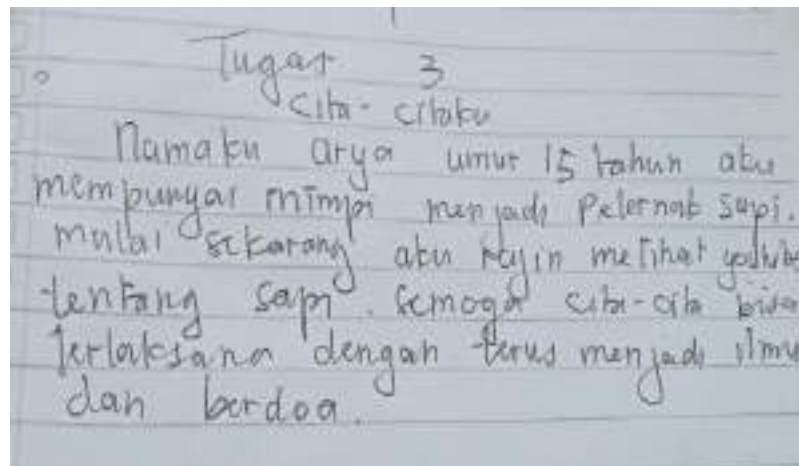 Tugas 3
Cita-citaku
Namaku arya umur 15 tahun aku
mempunyai mimpi menjadi Peternak Sapi.
mulai sekarang aku rajin melihat youtube
tentang sapi. Semoga cita-cita bisa
terlaksana dengan terus menjadi ilmu
dan berdoa.